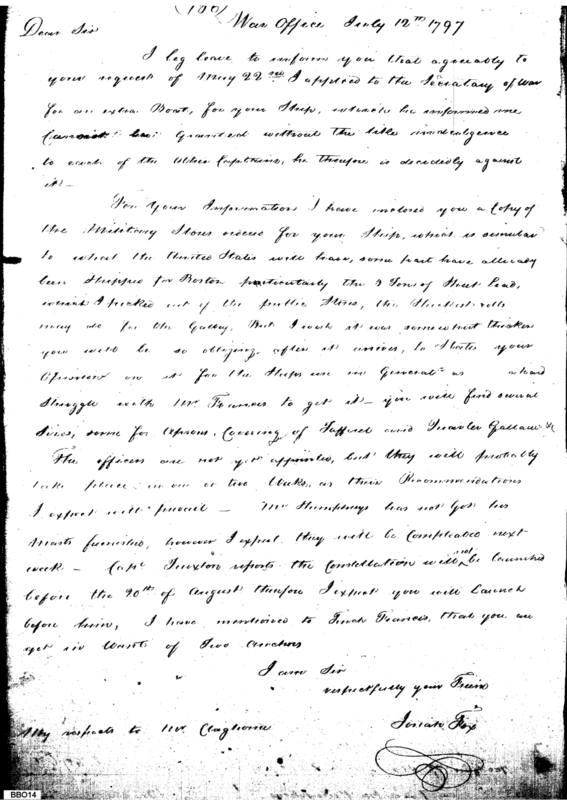 (100)
War Office July 12th 1797
Dear Sir
I beg leave to inform you that agreeably to
your request of May 22nd I applied to the Secretary of War
for an extra Boat, for your Ship, which he informed me
Cannot be Granted without the like indulgence
to each of the other Captains, he therefore is decidedly against
it—
For Your Information I have inclosed you a Copy of
the Military Stores ordered for your Ship, which is similar
to what the United States will have, some part have allready
been Shipped for Boston particularly the 3 Tons of Sheet Lead,
which I picked out of the public Stores, the Thickest rolls
may do for the Galley, But I wish it was somewhat thicker
you will be so obliging after it arrives, to State your
Opinion on it for the Ships use in General as a hard
Struggle with Mr. Francis to get it— you will find several
Sizes, some for Aprons, Covering of Taffrel and Quarter Galleries &c
The officers are not yet appointed, but they will probably
take place in one or two Weeks, as their Recommendations
I expect will prevail — Mr Humphreys has not Got his
Masts finished, however I expect they will be Compleated next
week — Capt Truxton reports the Constellation will not be launched
before the 20th of August therefore I expect you will Launch
before him, I have mentioned to Tench Francis, that you are
yet in Want of Two Anchors
I am Sir
respectfully your Friend
My respects to Mr. Claghorne
Josiah Fox
BBO14